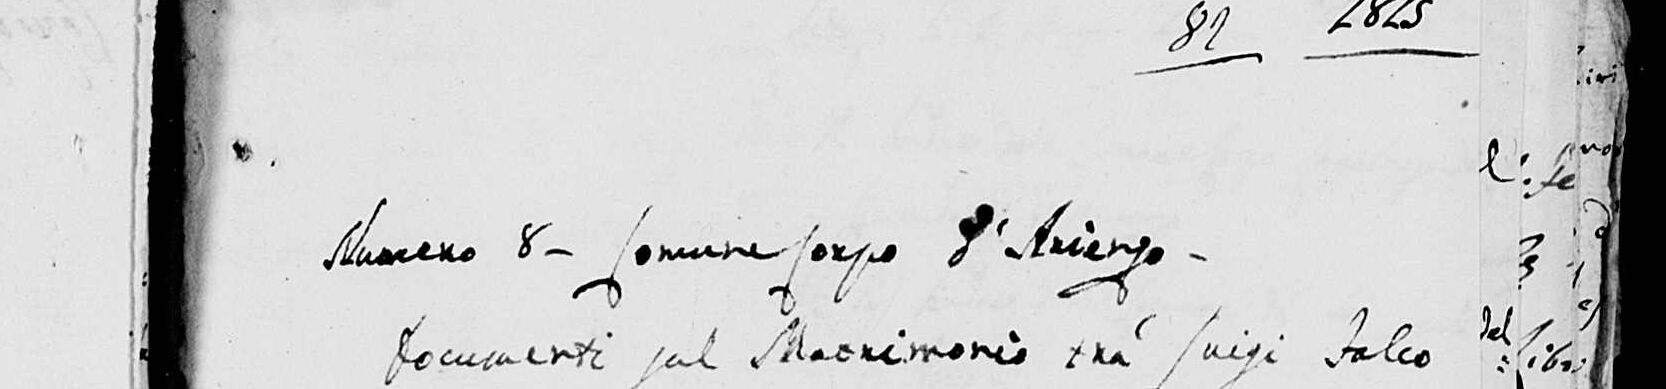 82 1825
Numero 8 - Comune Corpo d'Arienzo -
Documenti sul Matrimonio trà Luigi Falco